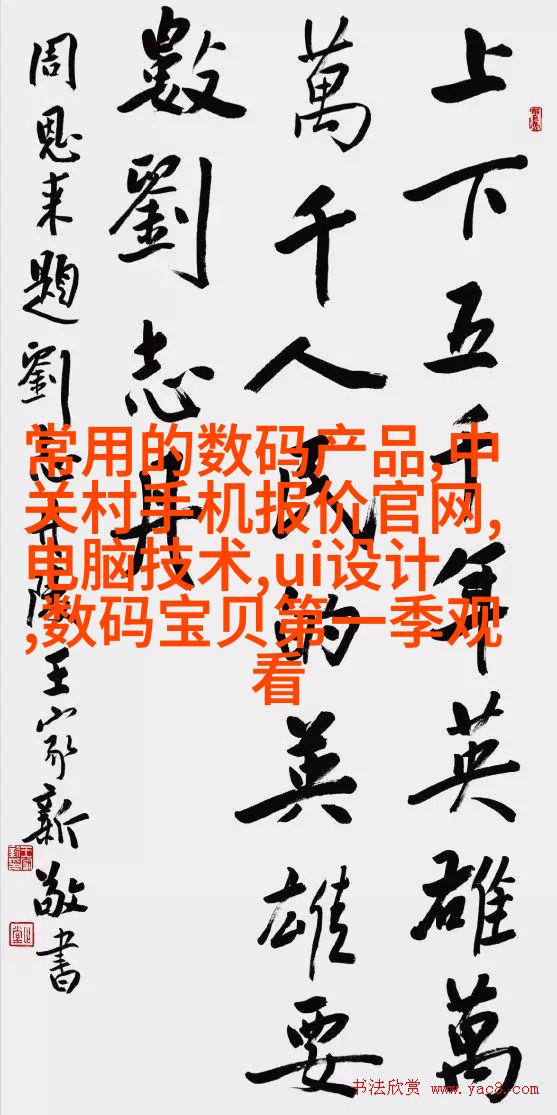 上下五千年英雄萬
萬千人民的英雄要
數劉志丹
周恩来題劉志丹王家新敬書
常用的数码产品,中
关村手机报价官网,
电脑技术,ui设计
,数码宝贝第一季观
看
书法欣赏 www.yac8.com